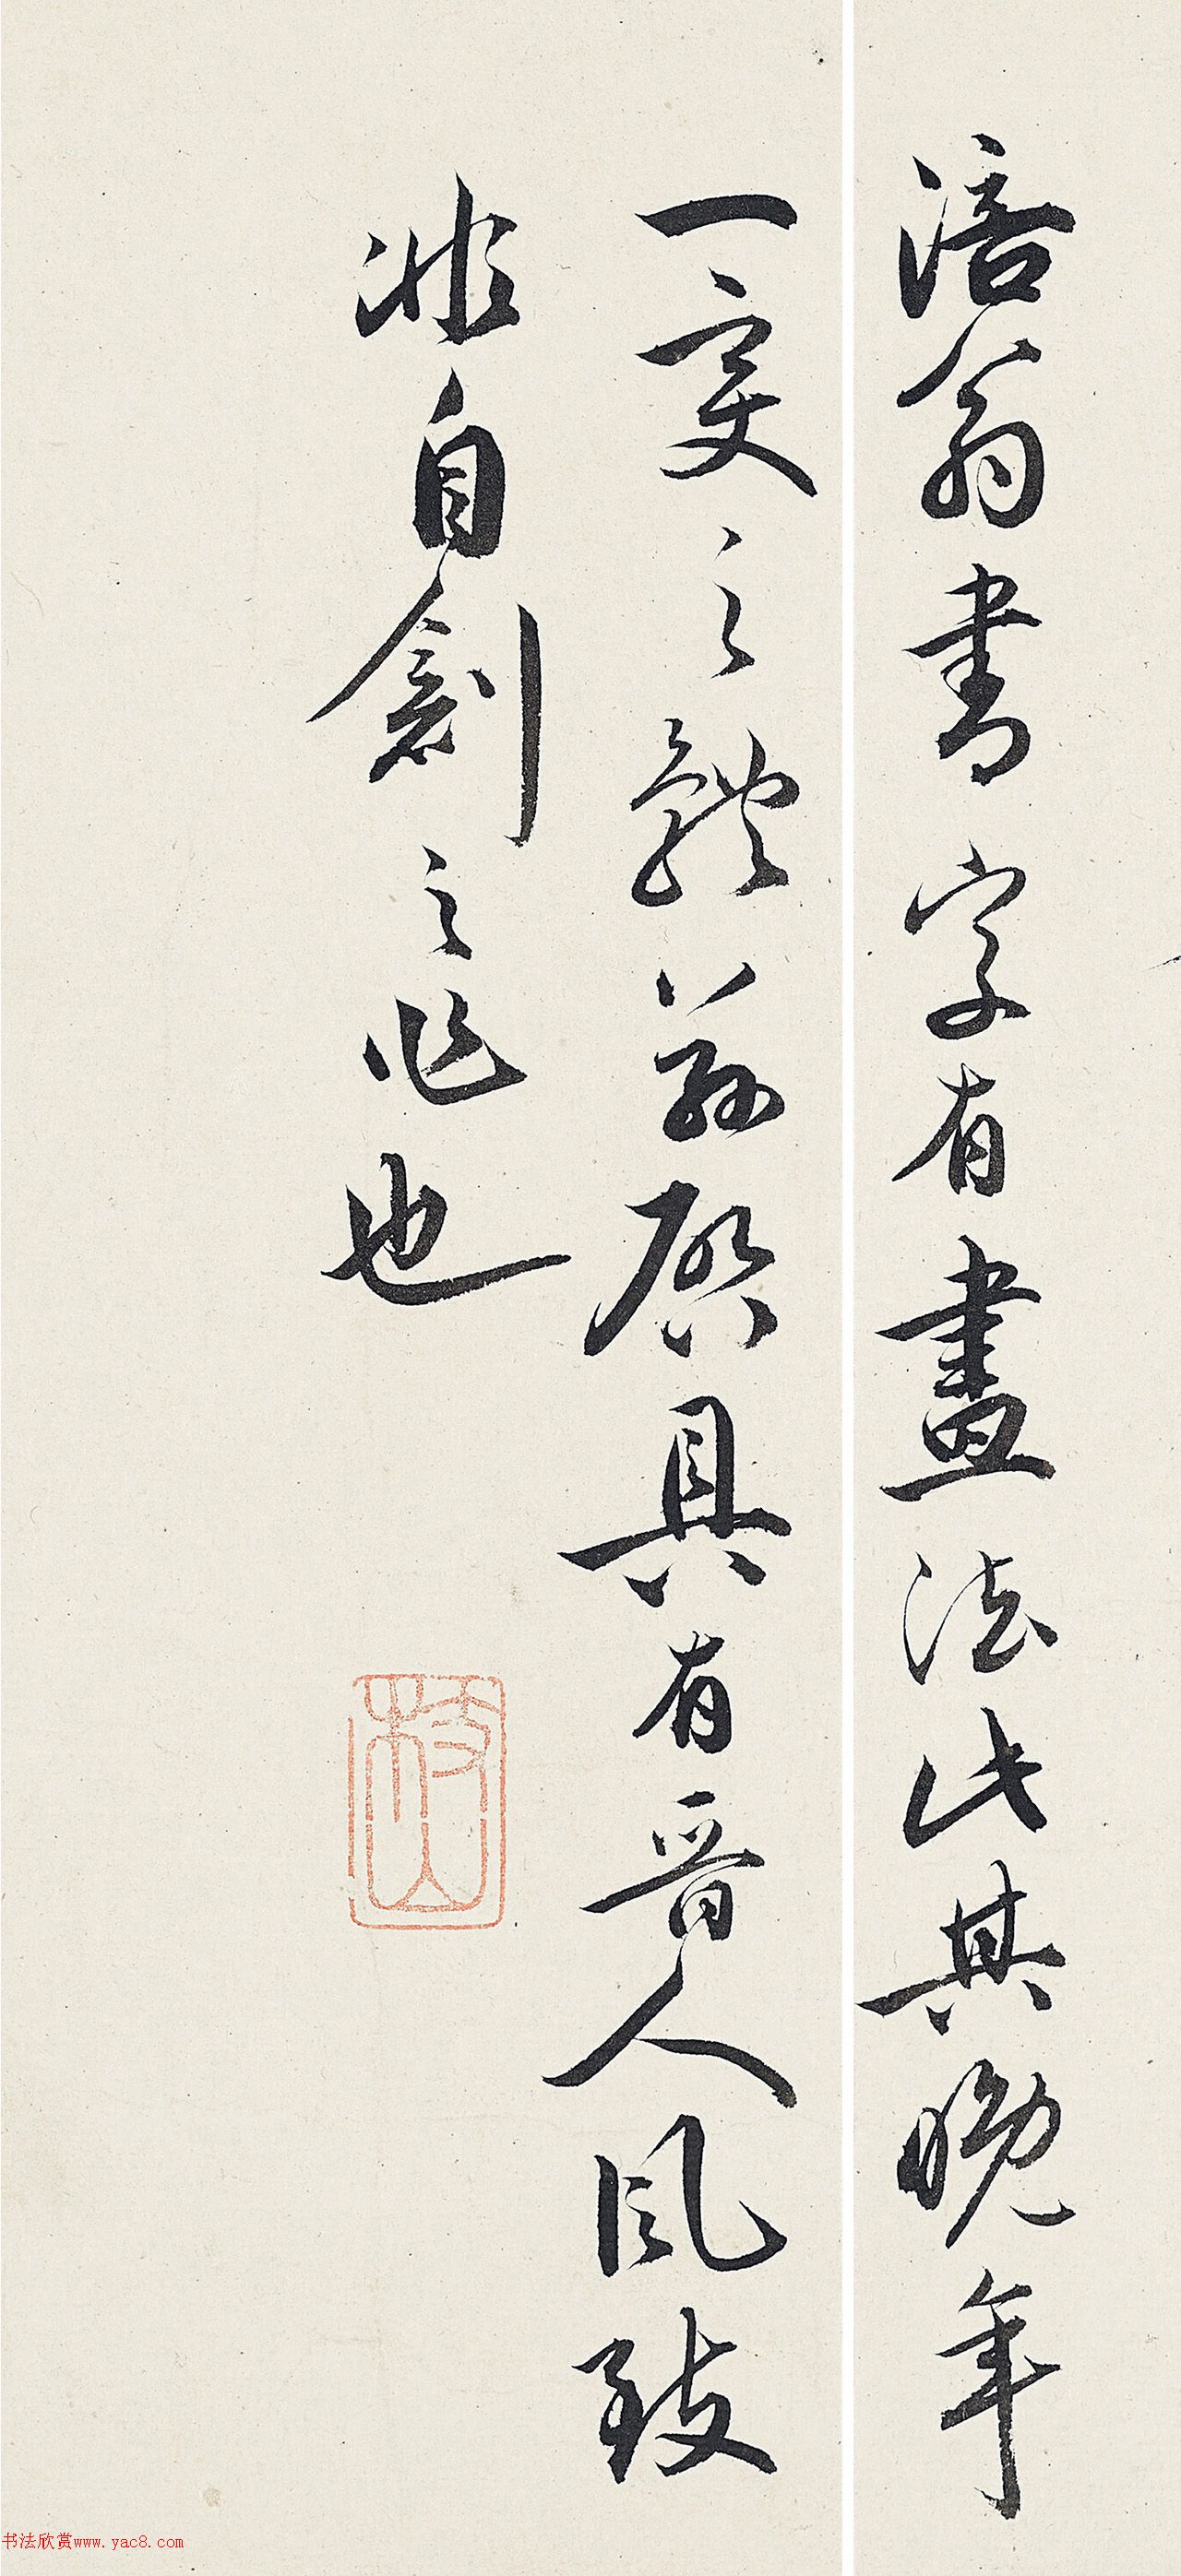 涪翁書字有畫法此其晚年
一變之體具有晉人風致
非自創之作也
枝山
书法欣赏www.yac8.com